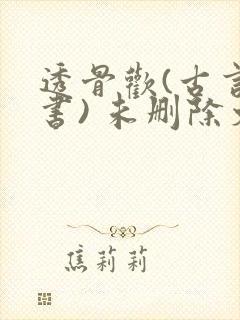 透骨歡(古言
書)未刪除
焦莉莉